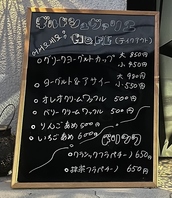 メニュー
(テイクアウト)
・グリークヨーグルトカップ 大 850円
小 450円
・ヨーグルト&アサイー 大 980円
小 550円
・オレオクリームワッフル 500円
・ベリークリームワッフル 500円
・りんごあめ 500円
・いちごあめ 600円
ドリンク
・クラシックフラペチーノ 650円
・抹茶フラペチーノ 650円